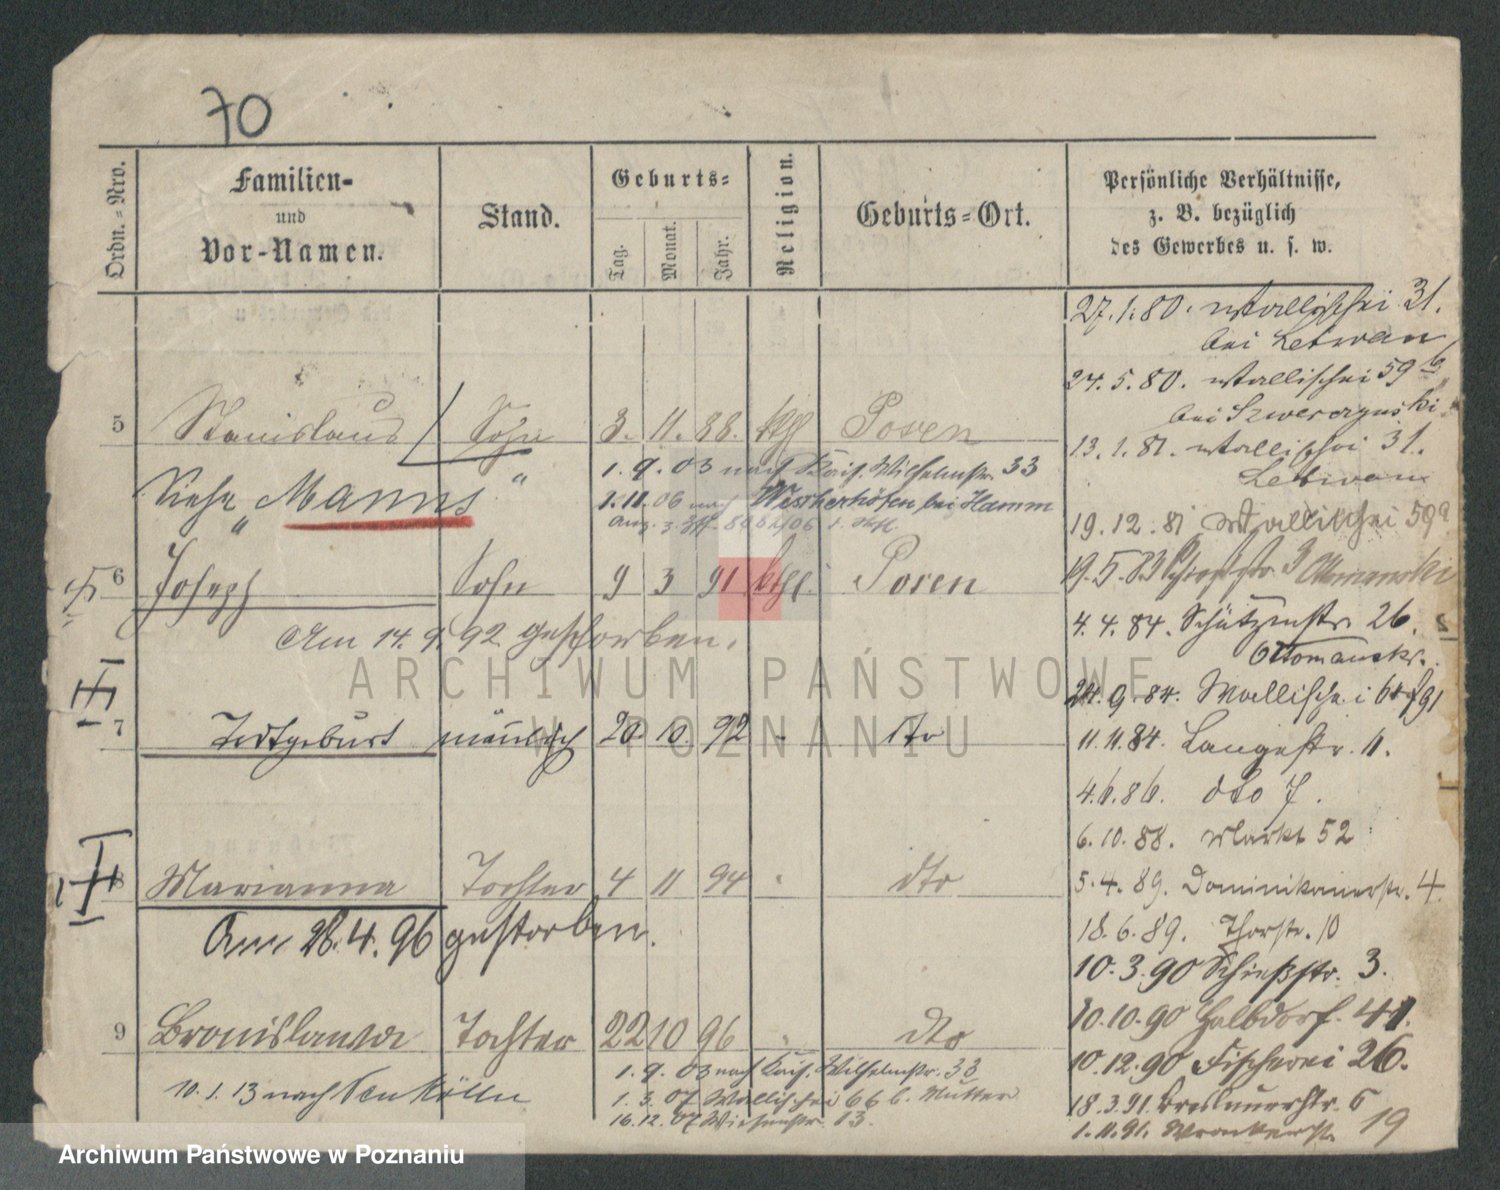 70
Ordn.=Nro.
Familien-
und
Vor-Namen.
Stand.
Geburts=
Tag.
Monat.
Jahr.
Religion.
Geburts=Ort.
Persönliche Verhältnisse,
z. B. bezüglich
des Gewerbes u. s. w.
5 Stanislaus Sohn 3. 11. 88. kth Posen
Siehe "Manns"
1. 9. 03 nach Kais. Wilhelmstr. 33
1. 11. 06 nach Westherhöfen bei Hamm
6 Joseph Sohn 9 3 91 kthl. Posen
Am 14. 9. 92 gestorben.
7 Todtgeburt männlich 20 10 92 - dto
8 Marianna Tochter 4 11 94 " dto
Am 28. 4. 96 gestorben.
9 Bronislawa Tochter 22 10 96 " dto
10. 1. 13 nach Neukölln
1. 9. 03 nach Kais. Wilhelmstr. 33
1. 3. 07 Wallischei 66 b. Mutter
16. 12. 07 Wiesenstr. 13.
27. 1. 80. Wallischei 31.
bei Letwan
24. 5. 80. Wallischei 59 b
bei
13. 1. 81. Wallischei 31.
Letwan
19. 12. 81 Wallischei 59a
19. 5. 83 Schiesstr. 3 Ottomanski
4. 4. 84. Schützenstr. 26.
Ottomansk.
24. 9. 84. Wallischei
11. 11. 84. Langestr. 11.
4. 6. 86. dto 7.
6. 10. 88. Markt 52
5. 4. 89. Dominikanerstr. 4.
18. 6. 89. Thorstr. 10
10. 3. 90 Schießstr. 3.
10. 10. 90 Halbdorf. 41.
10. 12. 90 Fischerei 26.
18. 3. 91. Breslauerstr. 6
1. 11. 91. Wronkerstr. 19
ARCHIWUM PAŃSTWOWE
W POZNANIU
Archiwum Państwowe w Poznaniu